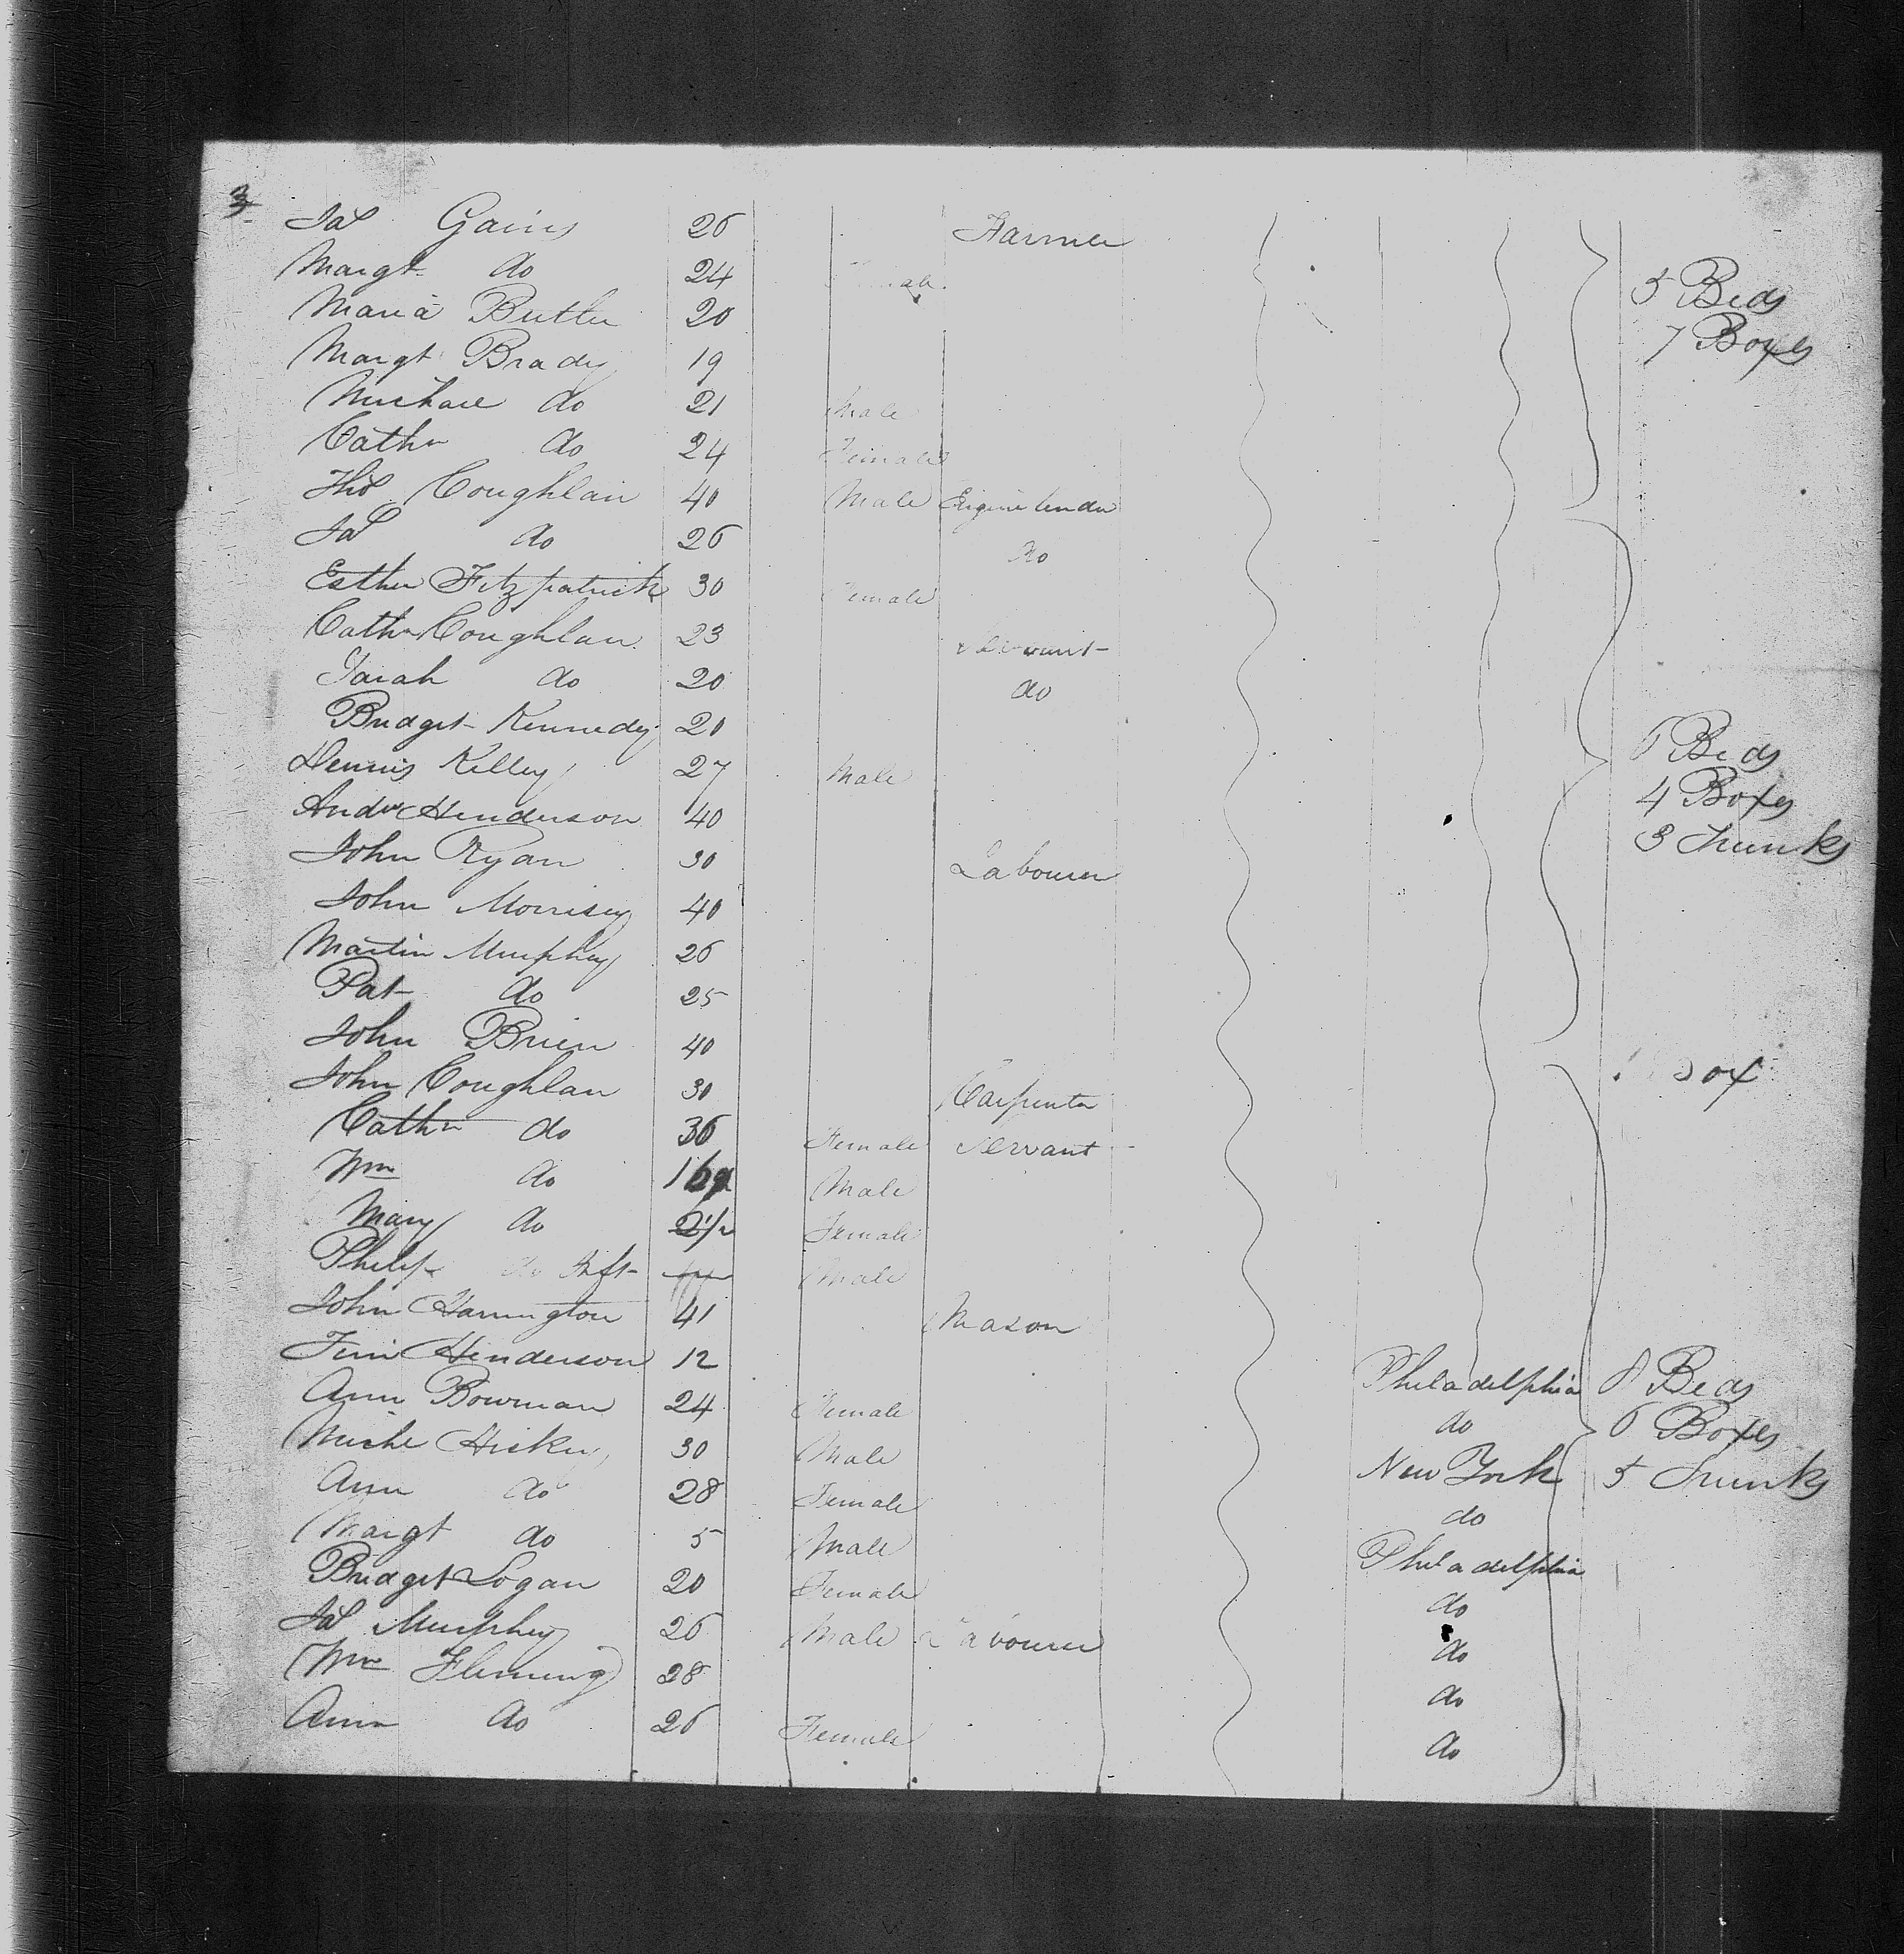 3
Jas Gains 26 Farmer
Margt do 24 Female
Maria Butler 20
Margt Brady 19
Michael do 21 Male
Cathn do 24 Female
Thos Coughlan 40 Male Engine tender
Jas do 26 do
Esther Fitzpatrick 30 Female
Cathn Coughlan 23 Servant
Sarah do 20 do
Bridget Kennedy 20
Dennis Kelley 27 Male
Andw Henderson 40
John Ryan 30 Labourer
John Morrisey 40
Martin Murphy 26
Pat do 25
John Brien 40
John Coughlan 30 Carpenter
Cathn do 36 Female Servant
Wm do Male
Mary do 2 1/2 Female
Philip do Inft Male
John Harrington 41 Mason
Jim Henderson 12 Philadelphia
Ann Bowman 24 Female do
Michl Hickey 30 Male New York
Ann do 28 Female do
Margt do 5 Male Philadelphia
Bridget Logan 20 Female do
Jas Murphy 26 Male Labourer do
Wm Fleming 28 do
Ann do 26 Female do
5 Beds
7 Boxes
6 Beds
4 Boxes
3 Trunks
Box
8 Beds
6 Boxes
5 Trunks